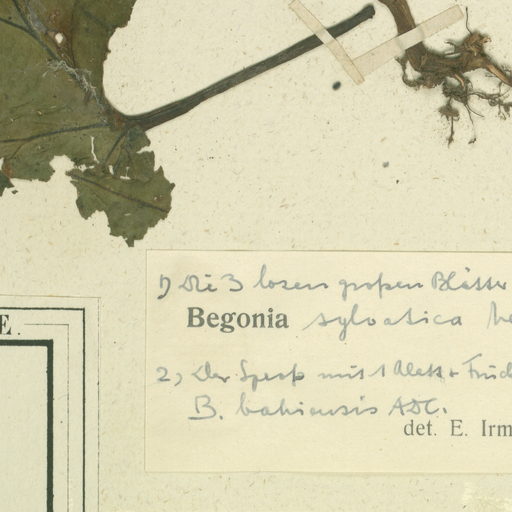 1) Die 3 losen großen Blätter
Begonia sylvatica
2) Der Spross mit 1 Blatt +
B. bahiensis ADC.
det. E. Irm
E.